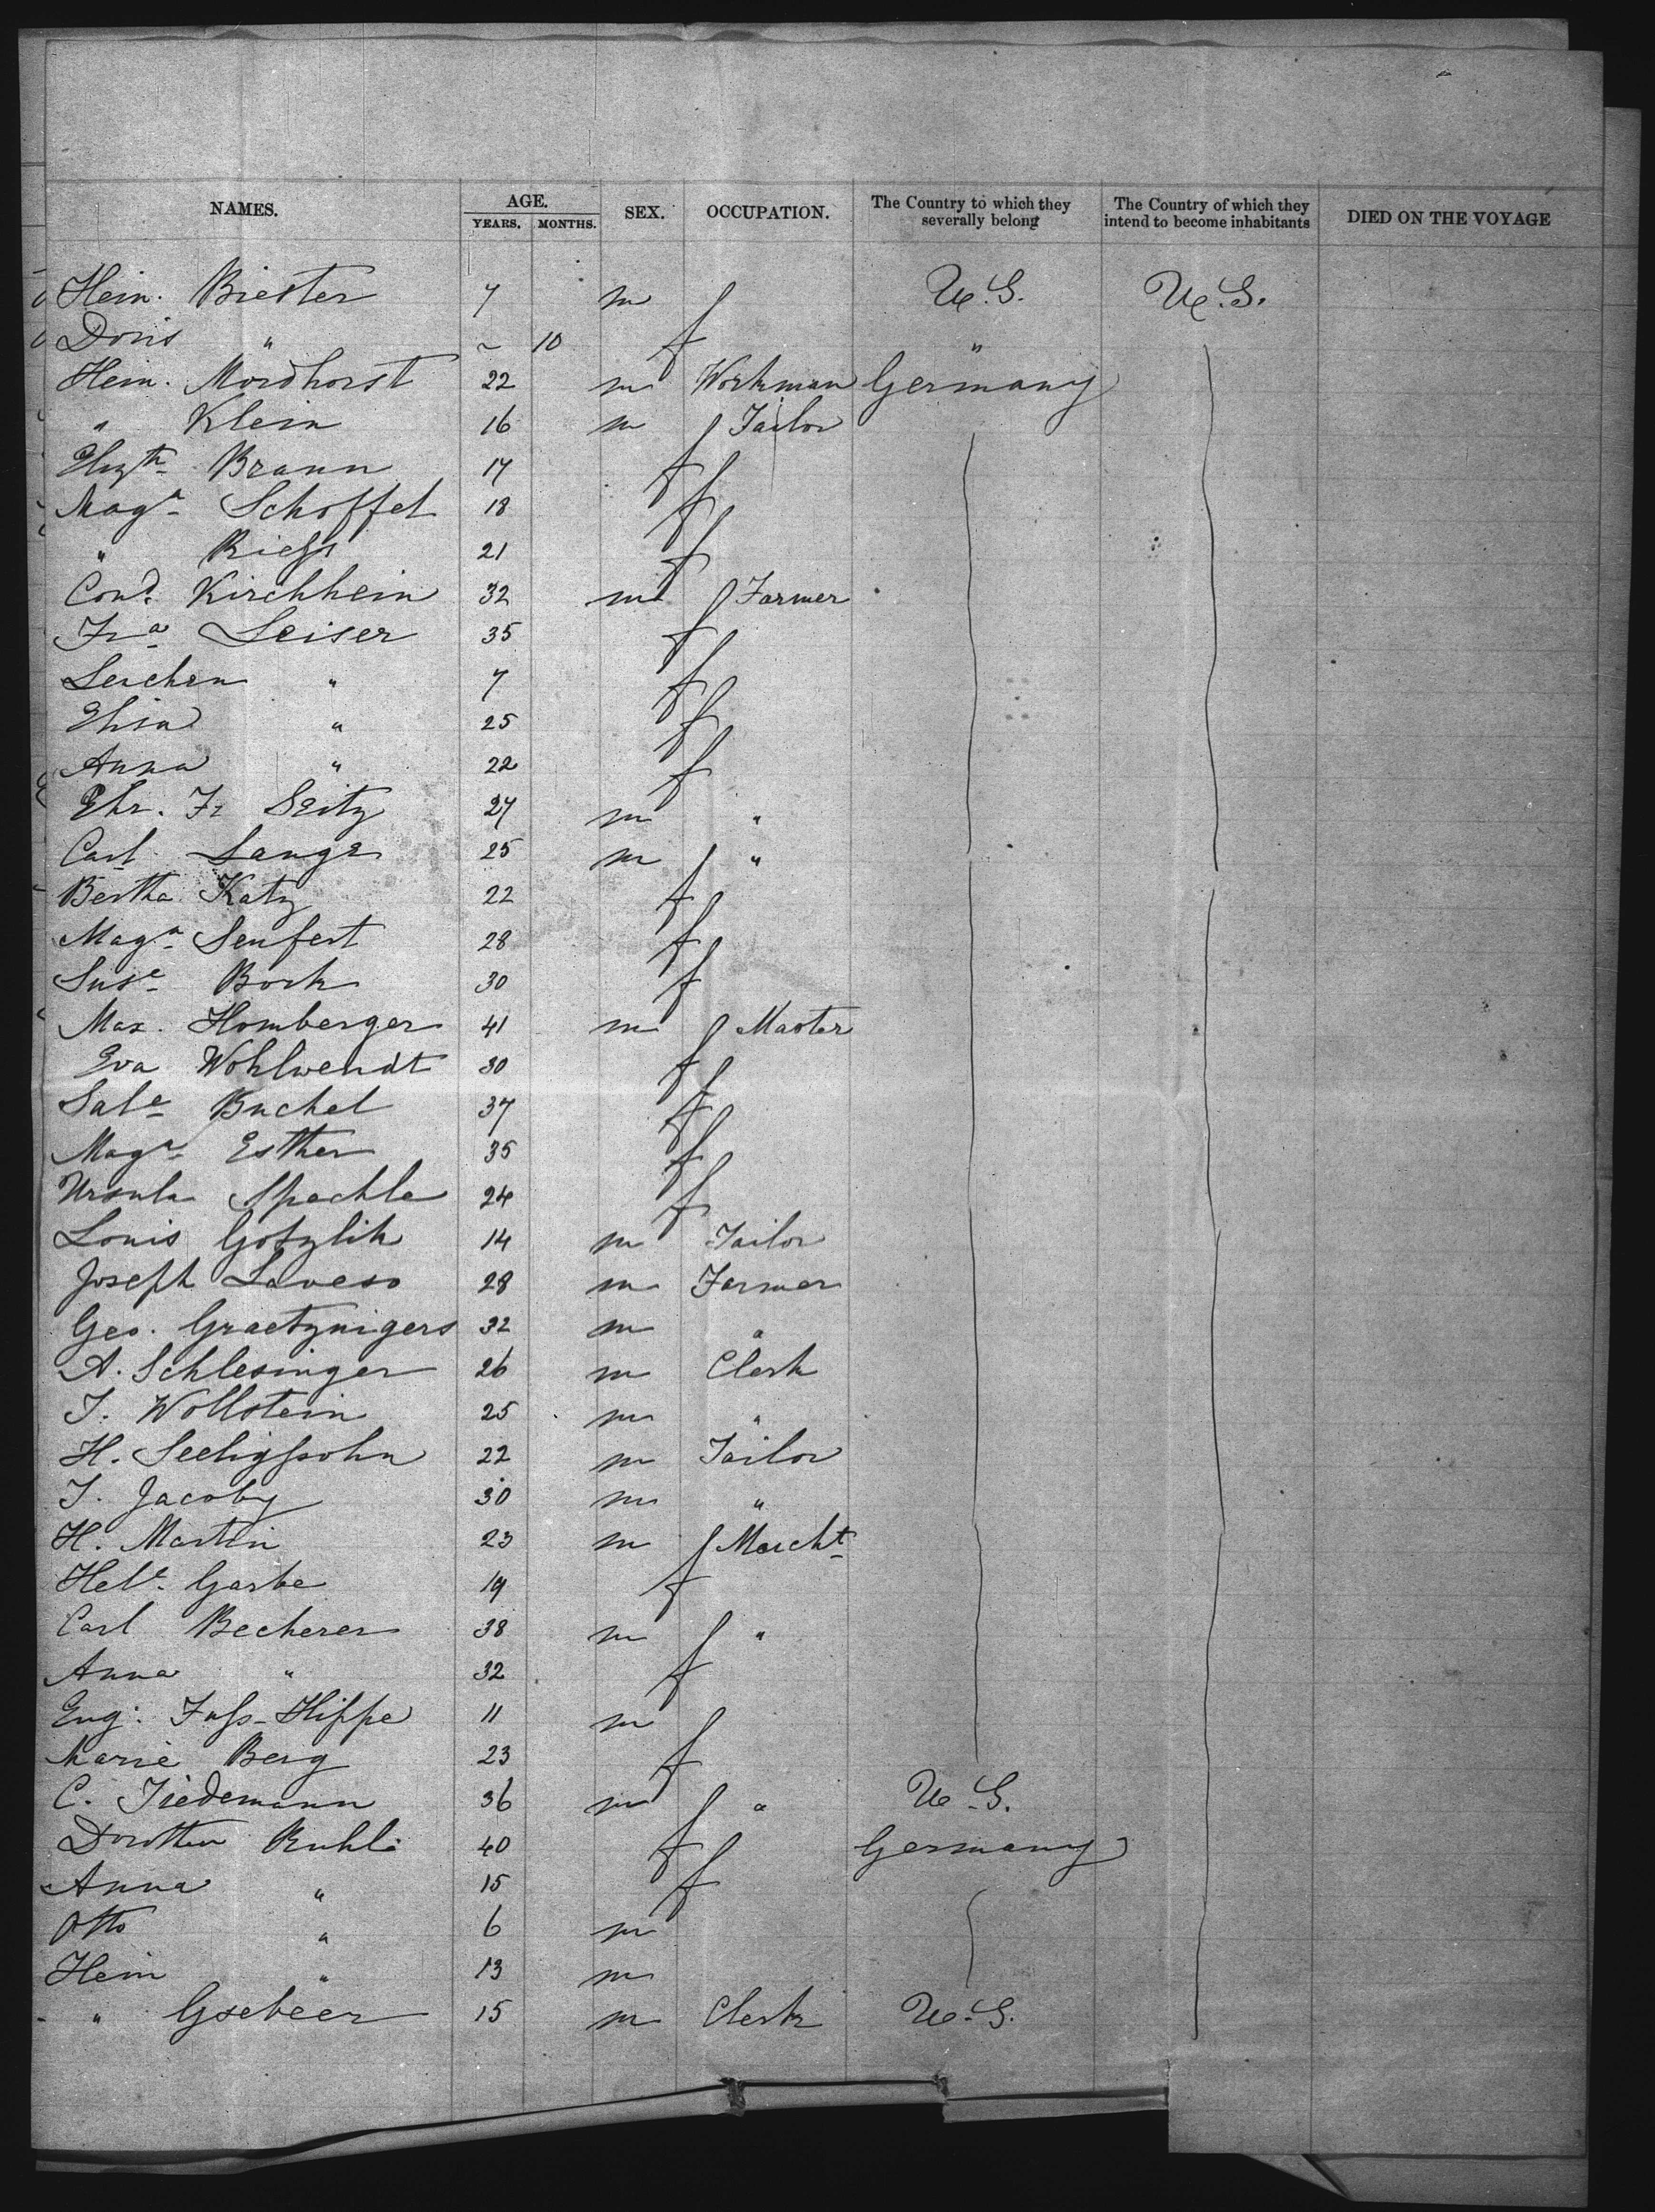 NAMES. AGE. SEX. OCCUPATION. The Country to which they severally belong The Country of which they intend to become inhabitants DIED ON THE VOYAGE
YEARS. MONTHS.
Hein. Biester 7 m U.S. U.S.
Doris " ~ 10 f "
Hein. Mordhorst 22 m Workman Germany
" Klein 16 m Tailor
Elizth Braun 17 f
Maga Schoffel 18 f
" Riess 21 f
Cond. Kirchhein 32 m Farmer
Fra Leiser 35 f
Lenchen " 7 f
Elisa " 25 f
Anna " 22 f
Chr. Fr Seitz 27 m "
Carl Lange 25 m "
Bertha Katz 22 f
Maga Senfert 28 f
Suse Bork 30 f
Max. Homberger 41 m Master
Eva Wohlwendt 30 f
Sale Buchel 37 f
Maga Esther 35 f
Ursula Spechle 24 f
Louis Gotzlik 14 m Tailor
Joseph Laveso 28 m Farmer
Geo. Graetznigers 32 m "
A. Schlesinger 26 m Clerk
J. Wollstein 25 m "
H. Seeligssohn 22 m Tailor
J. Jacoby 30 m "
H. Martin 23 m Mercht
Hele Garbe 19 f
Carl Becherer 38 m "
Anna " 32 f
Eug. Fuss-Hippe 11 m
Marie Berg 23 f
C. Tiedemann 36 m " U.S.
Dorothea Ruhl 40 f Germany
Anna " 15 f
Otto " 6 m
Hein " 13 m
" Gsebeer 15 m Clerk U.S.